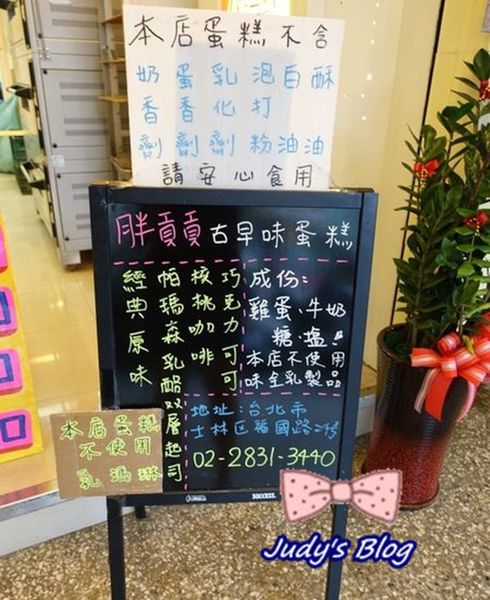 本店蛋糕不含
奶蛋乳泡白酥
香香化打
劑劑劑粉油油
請安心食用
胖貢貢古早味蛋糕
經典原味
帕瑪森乳酪
核桃咖啡
巧克力可可
雙層起司
成份:
雞蛋、牛奶
糖、塩!
本店不使用
味全乳製品
地址:台北市
士林区福國路
02-2831-3440
本店蛋糕
不使用
乳瑪琳
SUCCESS.
Judy's Blog